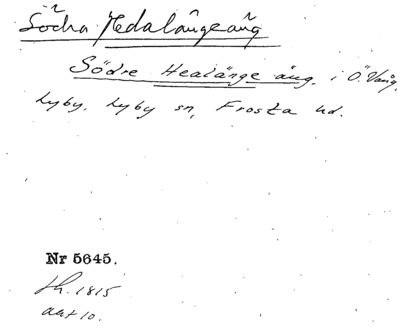 Södra Hedalångeäng
Södre Healänge äng. i Ö. Vång,
Lyby. Lyby sn, Frosta hd.
Nr 5645.
Sk. 1815
akt 10.